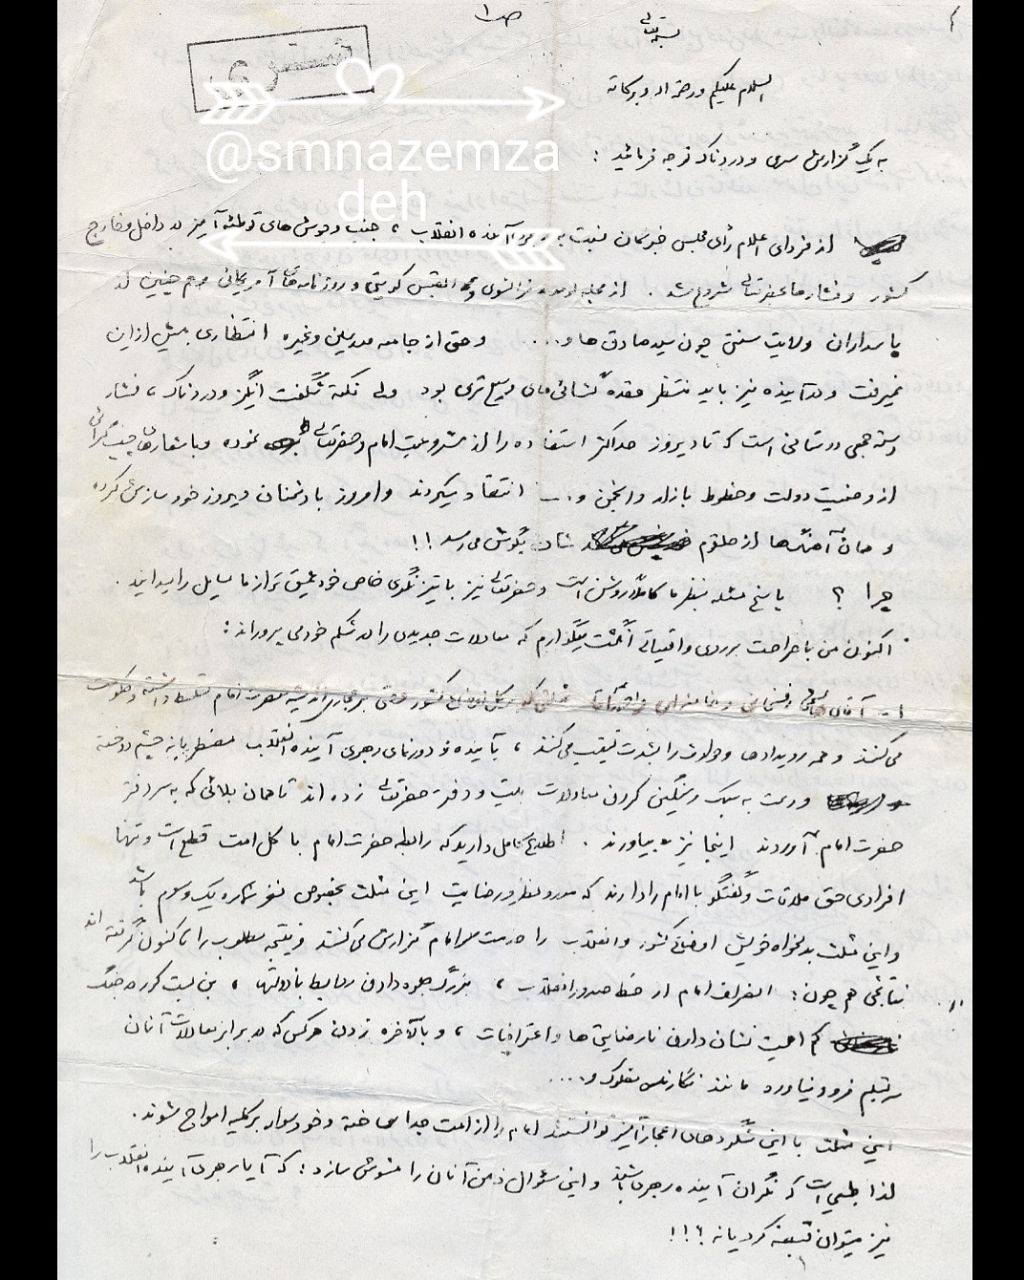 ص ۱
بسمه تعالی
السلام علیکم و رحمة الله و برکاته
@smnazemza
deh
به یک گزارش سری و دردناک توجه فرمائید :
از فردای اعلام رأی مجلس خبرگان نسبت به آینده انقلاب ، جنب و جوش های توطئه آمیز در داخل و خارج
کشور و فشارها به حضرتعالی شروع شد . از مجله فرانسوی و القبس کویتی و روزنامه های آمریکائی و هم چنین از
پاسداران ولایت سنتی چون سید صادق ها و .... و حتی از جامعه مدرسین و غیره انتظاری بیش از این
نمیرفت و در آینده نیز باید منتظر عقده گشائی های وسیع تری بود ولی نکته شگفت انگیز و دردناک ، فشار
دسته جمعی دوستانی است که تا دیروز حداکثر استفاده را از مشروعیت امام و حضرتعالی نموده و با شعارهای چپ گرائی
از وضعیت دولت و خطوط بازار و انجمن و ... انتقاد میکردند و امروز با دشمنان دیروز خود سازش کرده
و همان آهنگ ها از حلقوم شان بگوش می رسد !!
چرا ؟ پاسخ مسئله بنظر ما کاملاً روشن است و حضرتعالی نیز با تیزنگری خاص خود عمیق تر از ما مسایل را میدانید .
اکنون من با صراحت بر روی واقعیاتی انگشت میگذارم که معادلات جدیدی را در شکم خود می پروراند :
۱ - آقای هاشمی رفسنجانی و خامنه ای و احمد آقا مثلثی که بر کل اوضاع کشور و حتی بر مجاری اندیشه حضرت امام تسلط داشته و حکومت
می کنند و همه رویدادها و حوادث را بشدت تعقیب می کنند ، به آینده و دورنمای رهبری آینده انقلاب مضطربانه چشم دوخته
و دست به سبک و سنگین کردن معادلات بیت و دفتر حضرتعالی زده اند تا همان بلائی که به سر دفتر
حضرت امام آوردند اینجا نیز بیاورند . اطلاع کامل دارید که رابطه حضرت امام با کل امت قطع است و تنها
افرادی حق ملاقات و گفتگو با امام را دارند که مورد نظر و رضایت این مثلث بخصوص نفر شماره یک و سوم باشد
و این مثلث بدلخواه خویش اوضاع کشور و انقلاب را خدمت امام گزارش می کنند و نتیجه مطلوب را تاکنون گرفته اند
نتایجی هم چون : انحراف امام از خط صدور انقلاب ، بزرگ جلوه دادن روابط با دولتها ، بن بست کردن جنگ
کم اهمیت نشان دادن نارضایتی ها و اعتراضات ، و بالآخره زدن هر کس که در برابر معادلات آنان
سر تسلیم فرود نیاورد مانند نگارنده مفلوک و ....
این مثلث با این شگردهای اعجازآمیز توانستند امام را از امت جدا ساخته و خود سوار بر کلیه امواج شوند .
لذا طبیعی است که نگران آینده رهبری باشند و این سئوال ذهن آنان را مشوش سازد ؛ که آیا رهبری آینده انقلاب را
نیز میتوان قبضه کرد یا نه ؟!!!